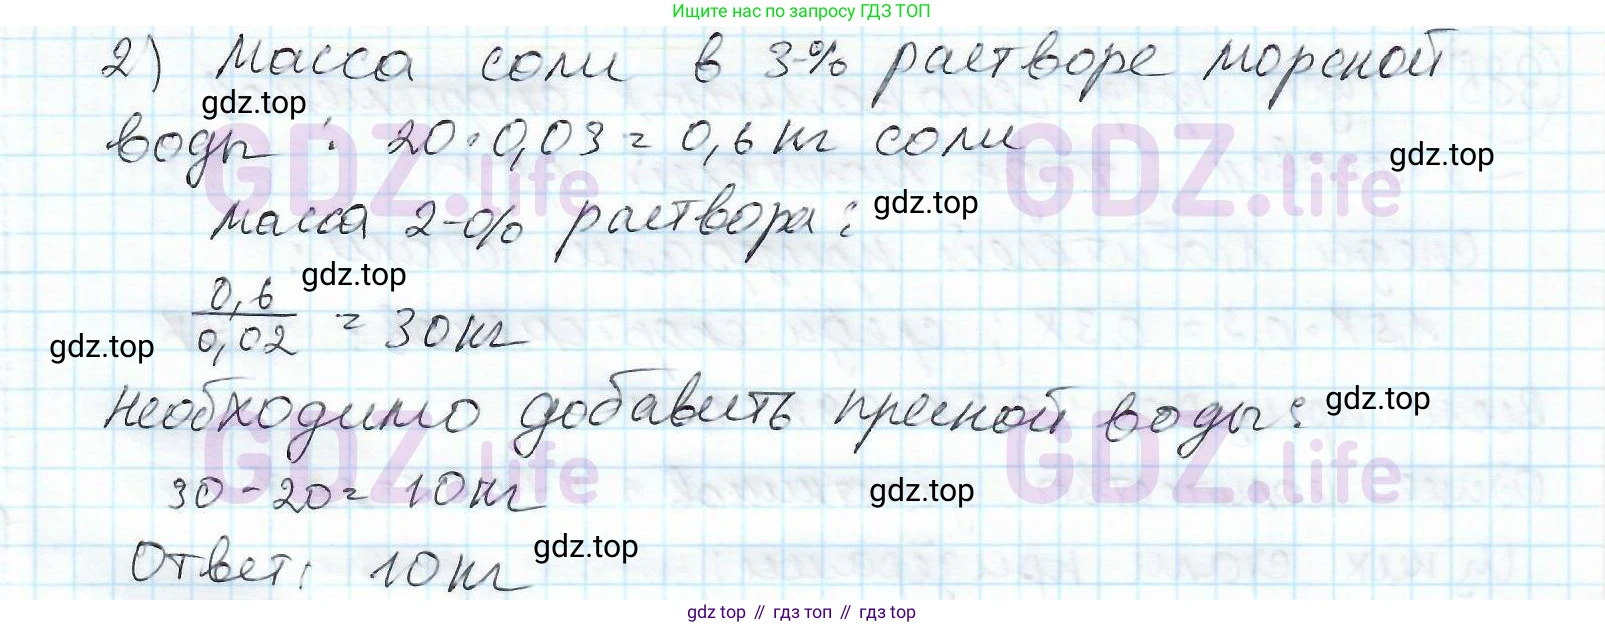 Ищите нас по запросу ГДЗ ТОП
2) Масса соли в 3-% растворе морской
gdz.top
воды: 20·0,03 = 0,6 кг соли
gdz.top
GDZ.life GDZ.life
масса 2-% раствора:
gdz.top
gdz.top
0,6
0,02
= 30 кг
gdz.top
Необходимо добавить пресной воды:
gdz.top
GDZ.life GDZ.life
30 - 20 = 10 кг
gdz.top
Ответ: 10 кг
gdz.top
gdz top // гдз топ // gdz top